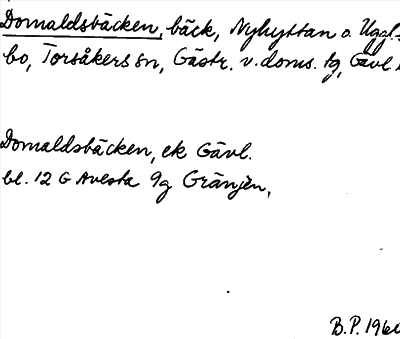 Domaldsbäcken, bäck, Nyhyttan o. Uggl-
bo, Torsåkers sn, Gästr. v. doms. tg, Gävl
Domaldsbäcken, ek Gävl.
bl. 12 G Avesta 9g Gränjen,
B.P. 1960